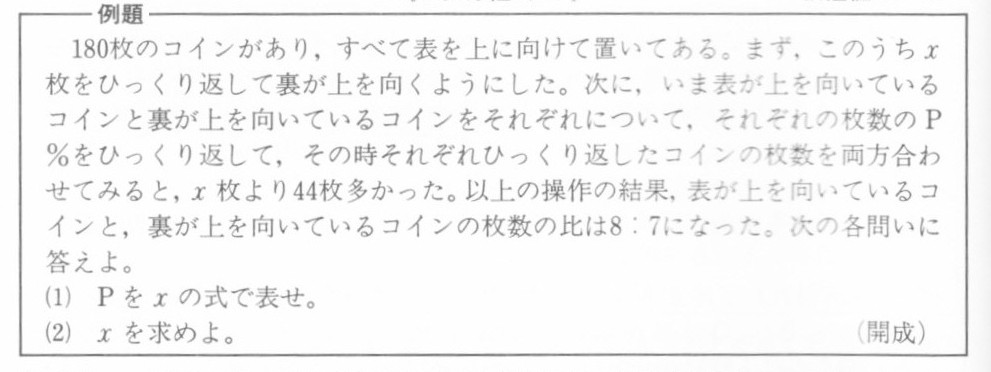 例題
180枚のコインがあり，すべて表を上に向けて置いてある。まず，このうちx
枚をひっくり返して裏が上を向くようにした。次に，いま表が上を向いている
コインと裏が上を向いているコインをそれぞれについて，それぞれの枚数のP
%をひっくり返して，その時それぞれひっくり返したコインの枚数を両方合わ
せてみると，x 枚より44枚多かった。以上の操作の結果，表が上を向いているコ
インと，裏が上を向いているコインの枚数の比は8：7になった。次の各問いに
答えよ。
(1) Pをxの式で表せ。
(2) xを求めよ。 （開成）